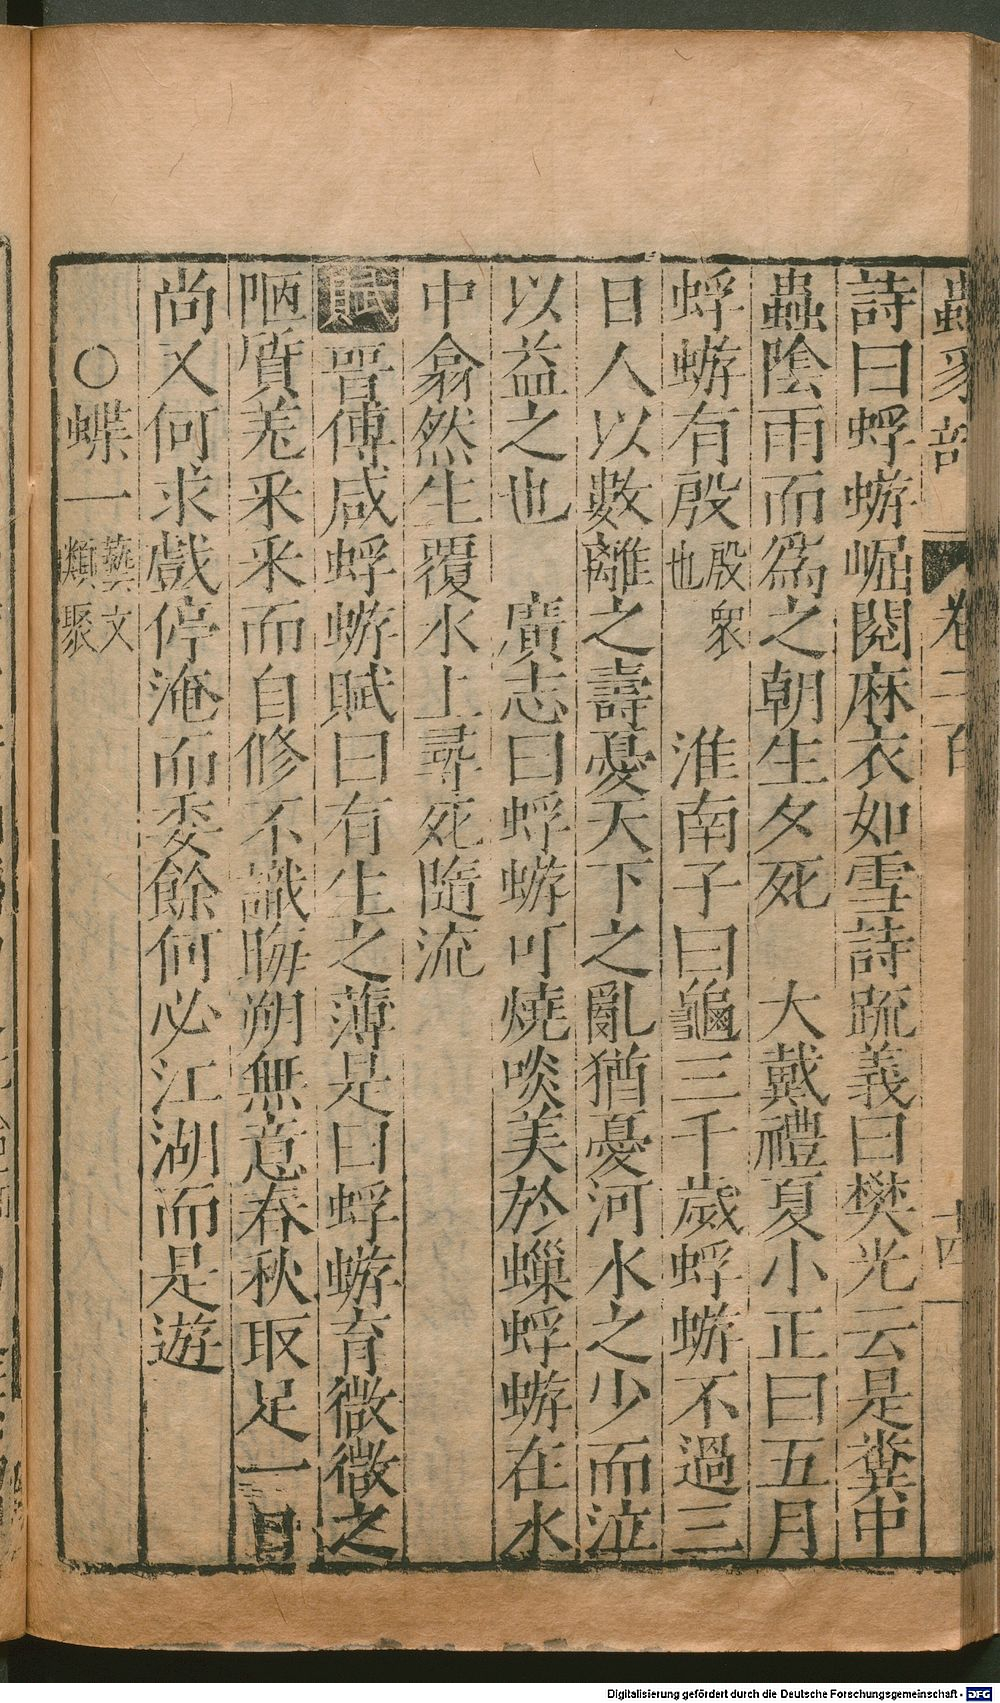 蟲豸部 卷三百 十四
詩曰蜉蝣崛閱麻衣如雪詩疏義曰樊光云是糞中
蟲陰雨而為之朝生夕死 大戴禮夏小正曰五月
蜉蝣有殷殷眾也 淮南子曰龜三千歲蜉蝣不過三
日人以數離之壽憂天下之亂猶憂河水之少而泣
以益之也 廣志曰蜉蝣可燒啖美於蟬蜉蝣在水
中翕然生覆水上尋死隨流
賦晉傅咸蜉蝣賦曰有生之薄是曰蜉蝣育微微之
陋質羌采采而自修不識晦朔無意春秋取足一日
尚又何求戲停淹而委餘何必江湖而是遊
○蝶一藝文類聚
Digitalisierung gefördert durch die Deutsche Forschungsgemeinschaft - DFG